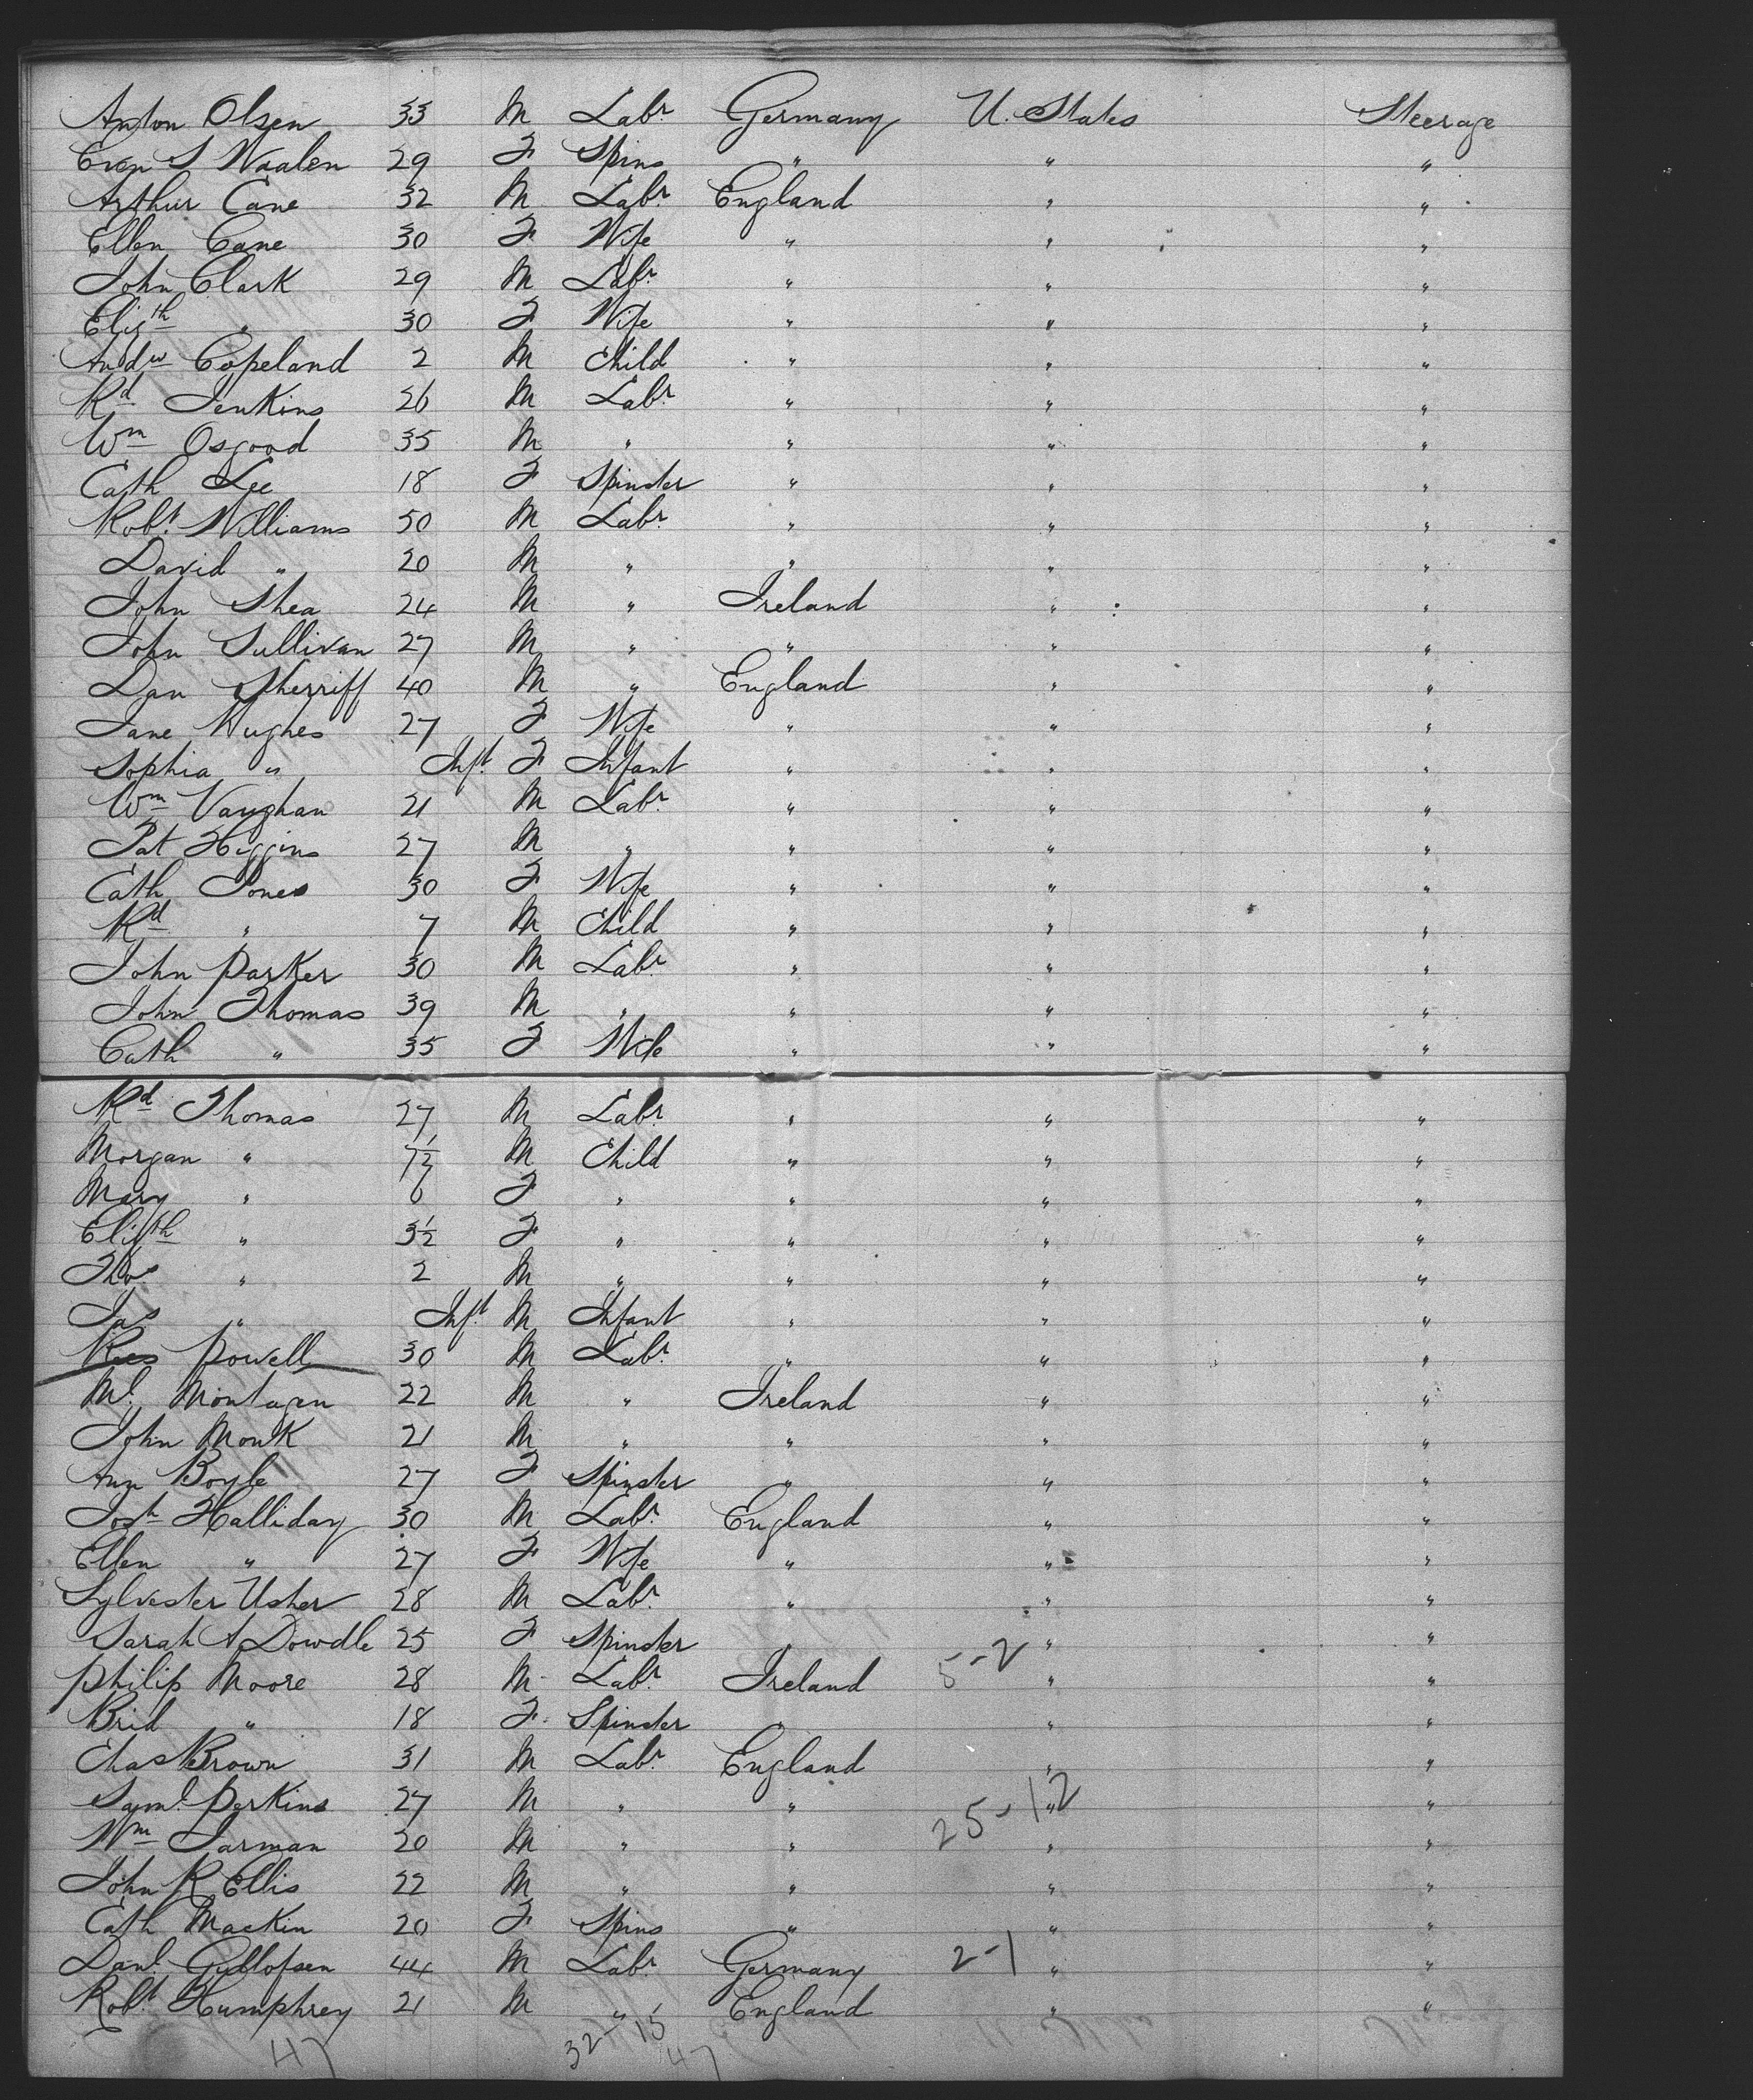 Anton Olsen 33 M Labr. Germany U. States Steerage
Even S Waalen 29 F Spins " " "
Arthur Cane 32 M Labr. England " "
Ellen Cane 30 F Wife " " "
John Clark 29 M Labr. " " "
Elizth " 30 F Wife " " "
Andw Copeland 2 M Child " " "
Rd Jenkins 26 M Labr. " " "
Wm Osgood 35 M " " " "
Cath Lee 18 F Spinster " " "
Robt. Williams 50 M Labr. " " "
David " 20 M " " " "
John Shea 24 M " Ireland " "
John Sullivan 27 M " " " "
Dan Sherriff 40 M " England " "
Jane Hughes 27 F Wife " " "
Sophia " Inft. F Infant " " "
Wm Vaughan 21 M Labr. " " "
Pat Higgins 27 M " " " "
Cath Jones 30 F Wife " " "
Rd " 7 M Child " " "
John Parker 30 M Labr. " " "
John Thomas 39 M " " " "
Cath " 35 F Wife " " "
Rd Thomas 27 M Labr. " " "
Morgan " 7½ M Child " " "
Mary " 6 F " " " "
Elizth " 3½ F " " " "
Thos " 2 M " " " "
Jas " Inft. M Infant " " "
Rees Powell 30 M Labr. " " "
Ml. Montagen 22 M " Ireland " "
John Monk 21 M " " " "
Ann Boyle 27 F Spinster " " "
Josh Halliday 30 M Labr. England " "
Ellen " 27 F Wife " " "
Sylvester Usher 28 M Labr. " " "
Sarah A. Dowdle 25 F Spinster " " "
5-2
Philip Moore 28 M Labr. Ireland " "
Brid " 18 F Spinster " " "
Chas Brown 31 M Labr. England " "
Saml. Perkins 27 M " " " "
25-12
Wm Jarman 20 M " " " "
John R Ellis 22 M " " " "
Cath Mackin 20 F Spins " " "
Danl. Gullofsen 44 M Labr. Germany 2-1 " "
Robt. Humphrey 21 M " England " "
47 32-15 47